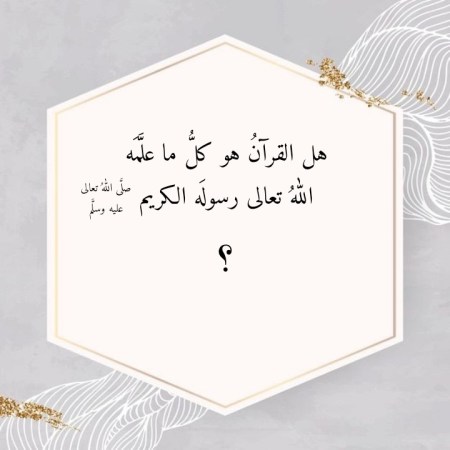 هل القرآنُ هو كلُّ ما علَّمَه
اللهُ تعالى رسولَه الكريم صلَّى اللهُ تعالى عليه وسلَّم
؟